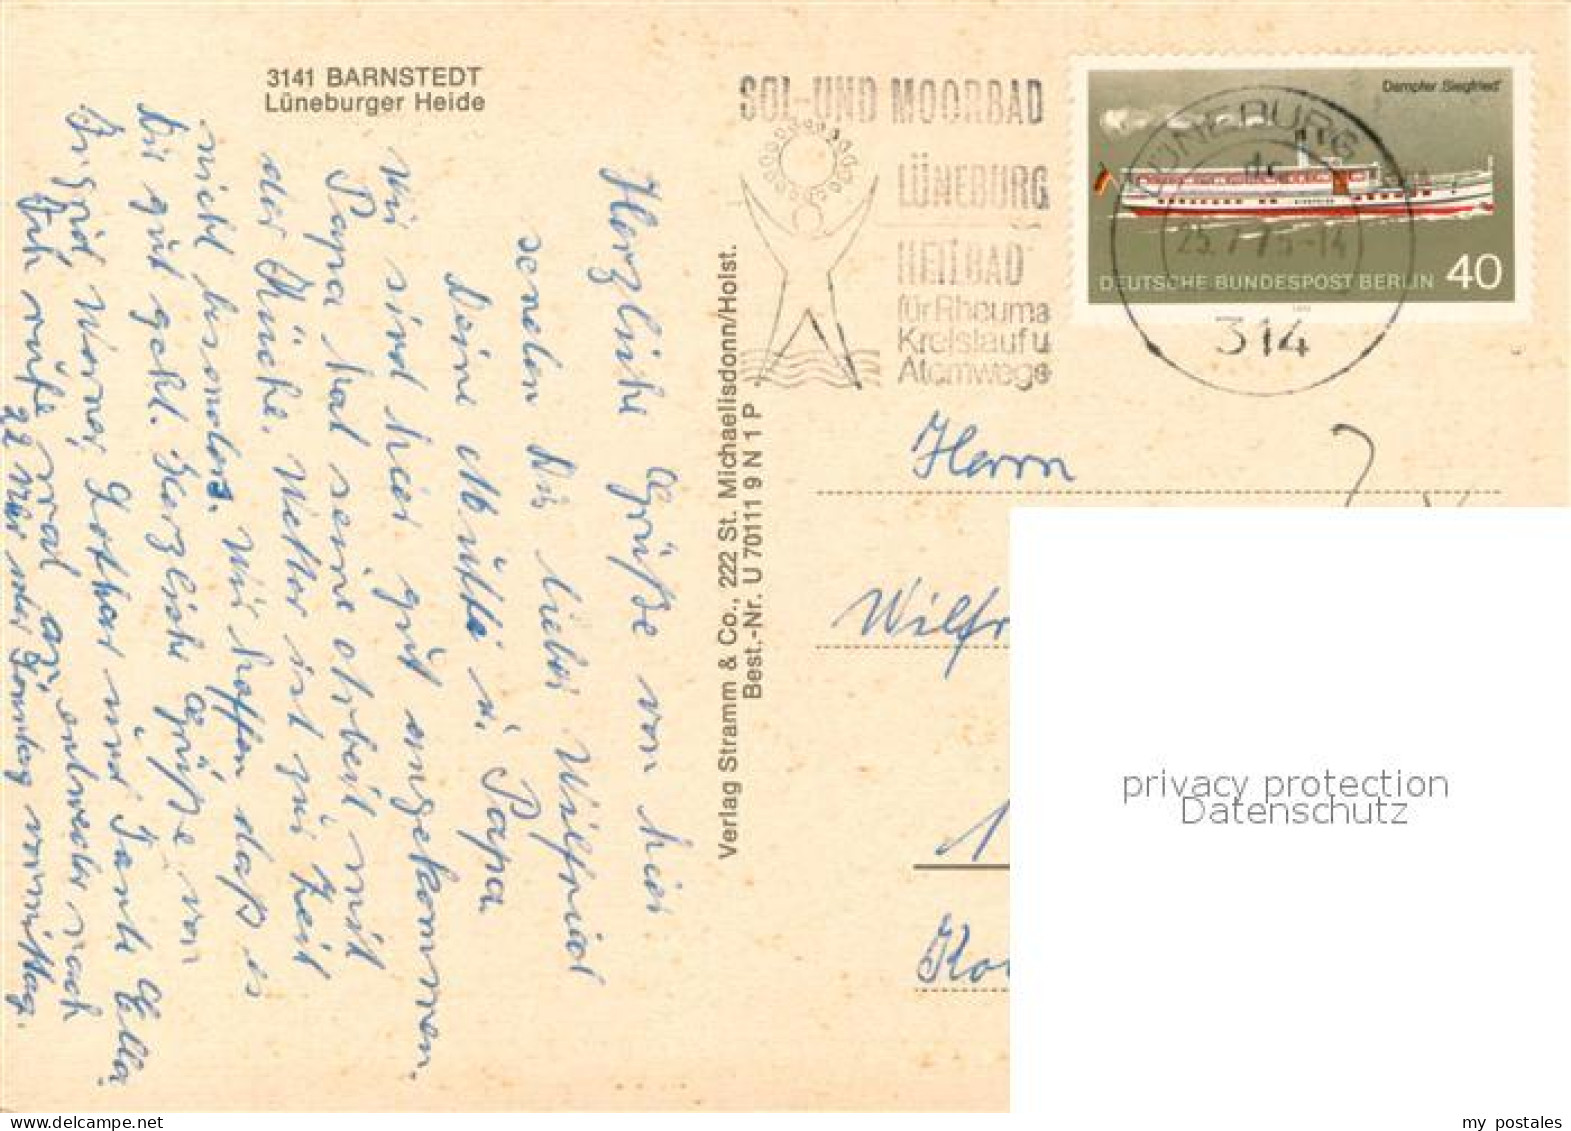 3141 BARNSTEDT
Lüneburger Heide
SOL- UND MOORBAD
LÜNEBURG
HEILBAD
für Rheuma
Kreislauf u
Atemwege
Dampfer „Siegfried“
DEUTSCHE BUNDESPOST BERLIN 40
LÜNEBURG
dc
25.7.75-14
314
Herzliche Grüße von hier
senden Dir lieber Wilfried
Deine Mutti u. Papa
Wir sind hier gut angekommen.
Papa hat seine Arbeit mit
der Küche. Wetter ist zur Zeit
nicht besonders. Wir hoffen daß es
Dir gut geht. Herzliche Grüße von
Ingrid, Werner, Lothar und Tante Ella
Ich rufe mal an entweder nach
22 Uhr oder Sonntag vormittag.
Verlag Stramm & Co., 222 St. Michaelisdonn/Holst.
Best.-Nr. U 70111 9 N 1 P
Herrn
Wilfr
1
Ko
privacy protection
Datenschutz
my postales